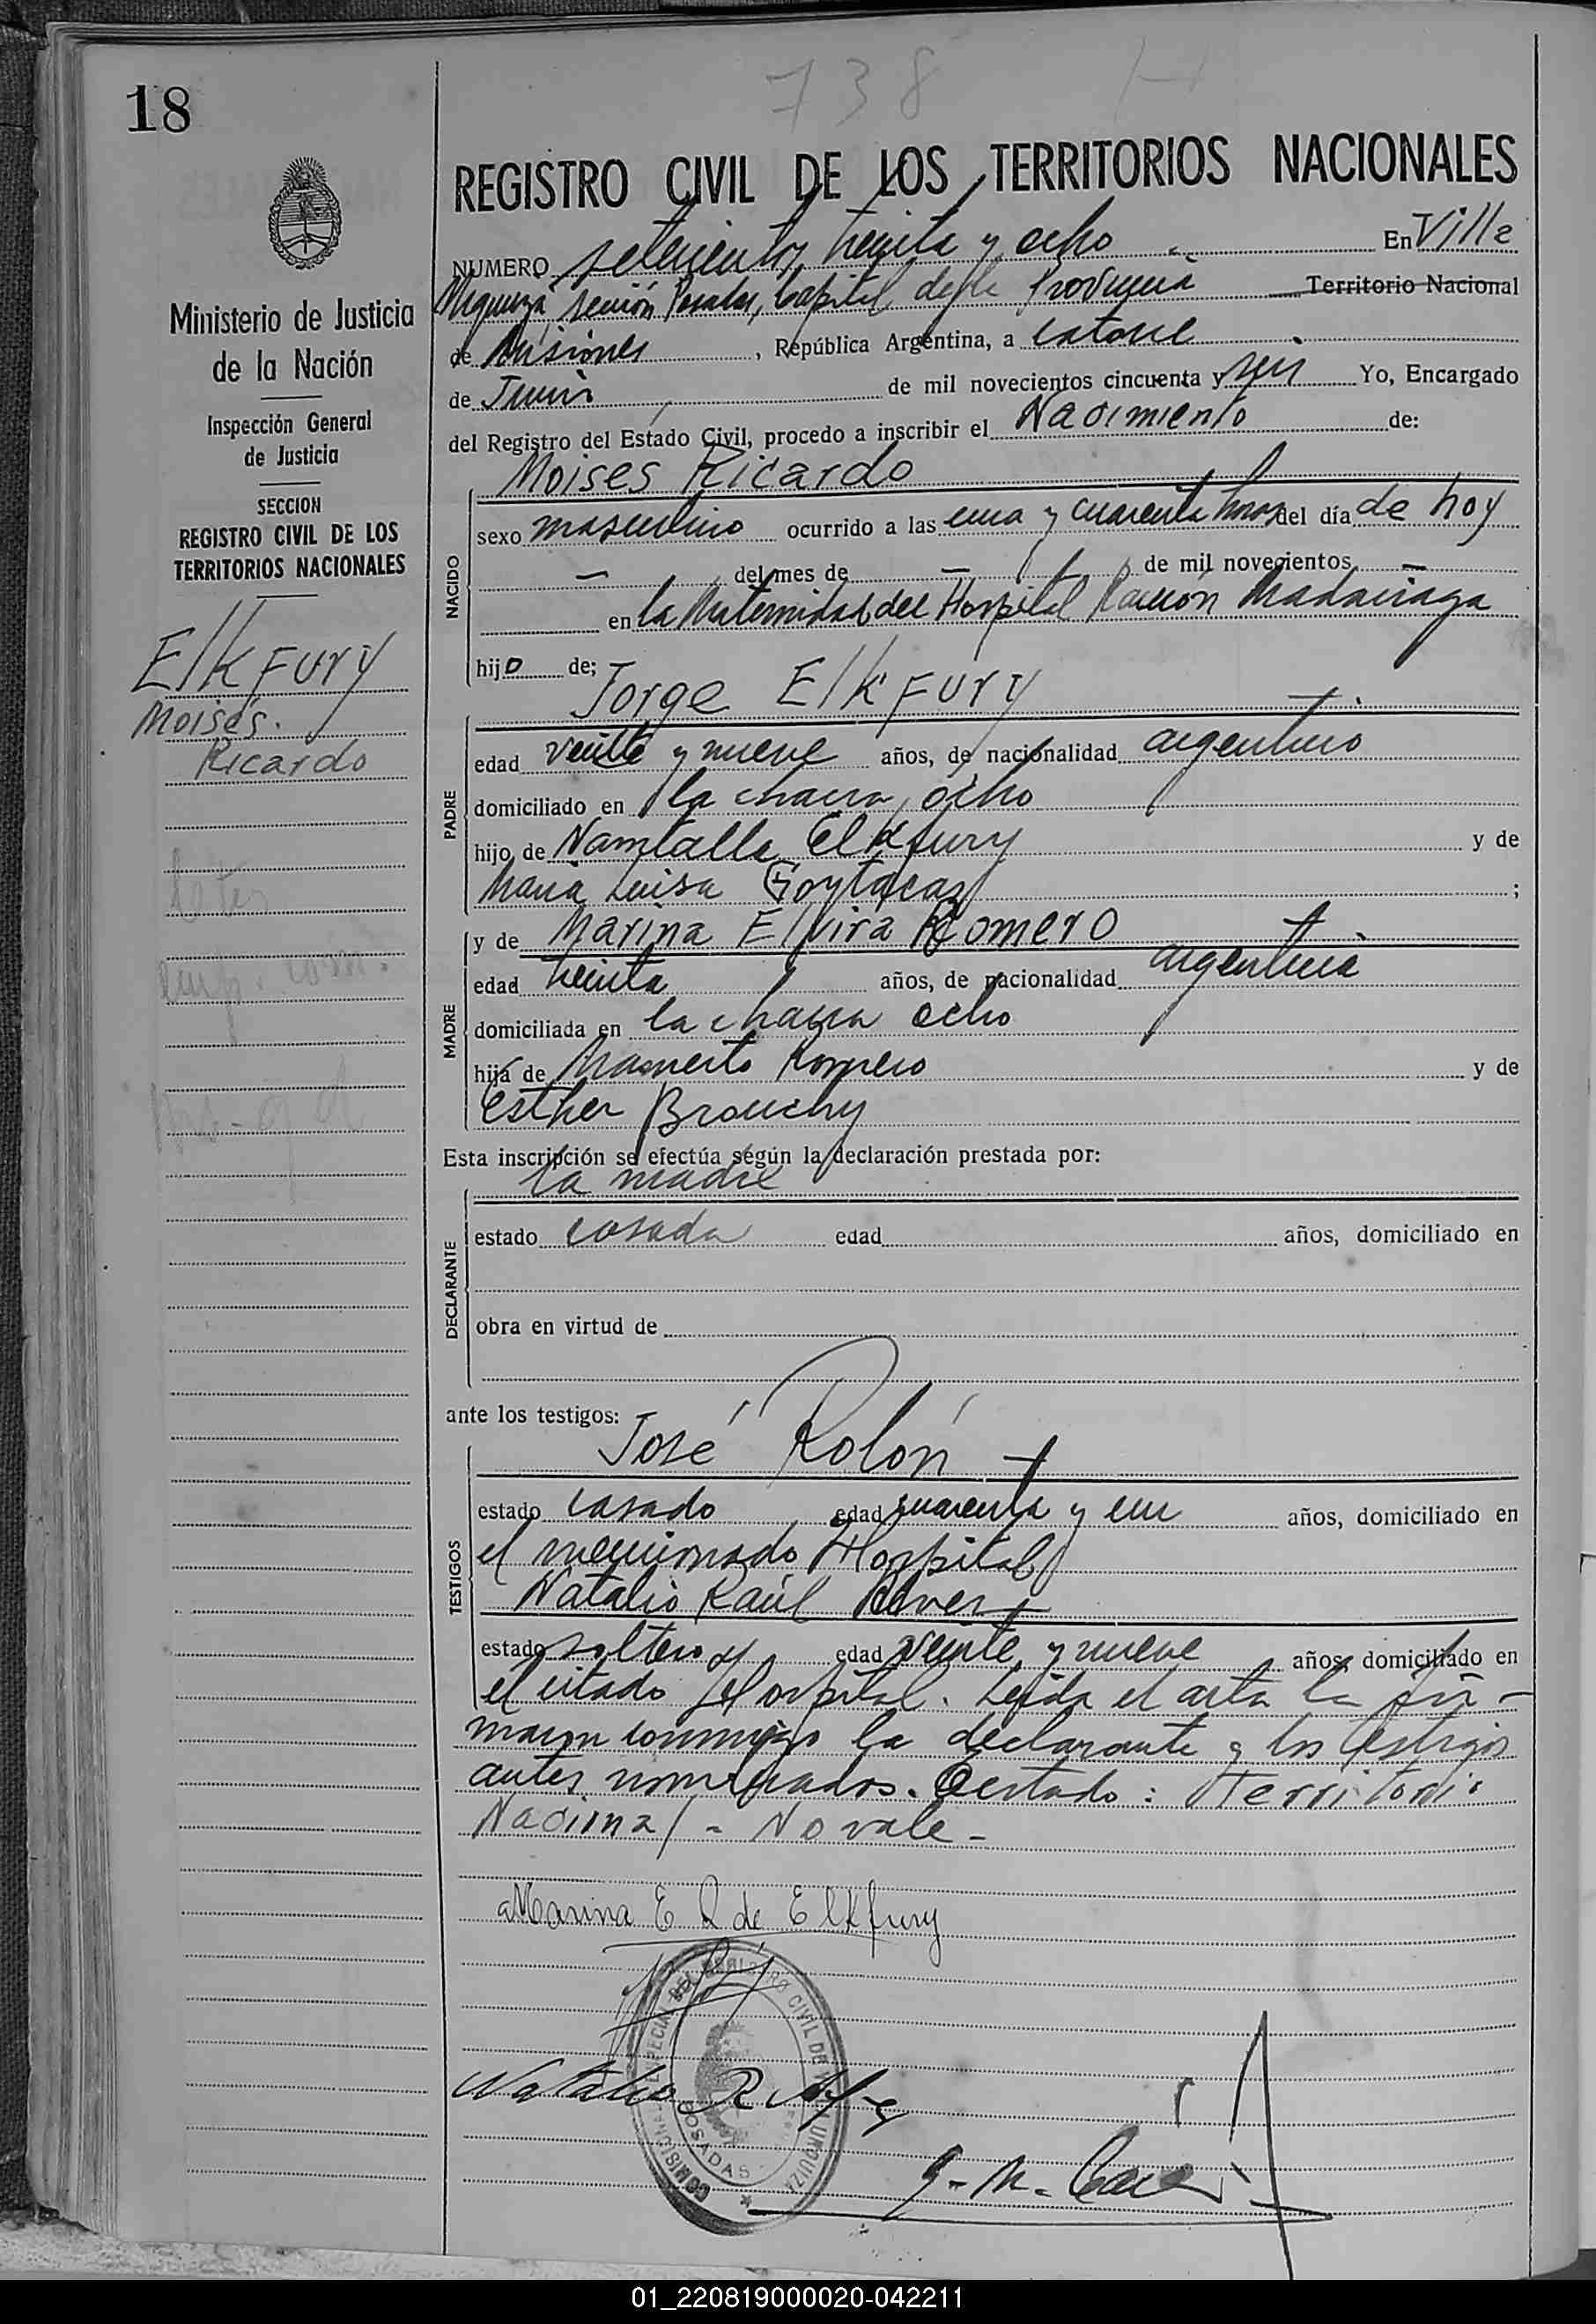 738 H
18
REGISTRO CIVIL DE LOS TERRITORIOS NACIONALES
NUMERO setecientos treinta y ocho .- En Villa
Urquiza, sección Posadas, Capital de la Provincia Territorio Nacional
de Misiones , República Argentina, a catorce
de Junio de mil novecientos cincuenta y seis Yo, Encargado
del Registro del Estado Civil, procedo a inscribir el Nacimiento de:
Ministerio de Justicia
de la Nación
Inspección General
de Justicia
SECCION
REGISTRO CIVIL DE LOS
TERRITORIOS NACIONALES
Elkfury
Moisés.
Ricardo
NACIDO
Moises Ricardo
sexo masculino ocurrido a las una y cuarenta horas del día de hoy
— del mes de — de mil novecientos —
en la Maternidad del Hospital Ramón Madariaga
hijo de;
PADRE
Jorge Elkfury
edad veinte y nueve años, de nacionalidad argentino
domiciliado en la chacra ocho
hijo de Namtalla Elkfury y de
María Luisa Goytacaz ;
MADRE
y de Marina Elvira Romero
edad treinta años, de nacionalidad argentina
domiciliada en la chacra ocho
hija de Mamerto Romero y de
Esther Brouchy
Esta inscripción se efectúa según la declaración prestada por:
DECLARANTE
la madre
estado casada edad años, domiciliado en
obra en virtud de
ante los testigos:
TESTIGOS
José Rolón
estado casado edad cuarenta y un años, domiciliado en
el mencionado Hospital
Natalio Raúl
estado soltero edad veinte y nueve años, domiciliado en
el citado Hospital. Leída el acta la fir-
maron conmigo la declarante y los testigos
antes nombrados. Testado: Territorio
Nacional - No vale -
Marina E R de Elkfury
Natalio R
COMISION ESPECIAL DEL REGISTRO CIVIL DE VILLA URQUIZA
POSADAS
01_220819000020-042211